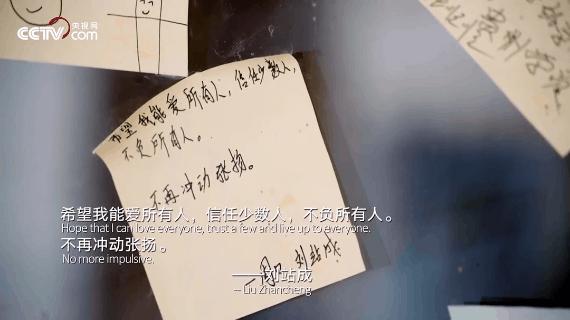 CCTV.com 央视网
希望我能爱所有人，信任少数人，
不负所有人。
不再冲动张扬。
刘站成
希望我能爱所有人，信任少数人，不负所有人。
Hope that I can love everyone, trust a few and live up to everyone.
不再冲动张扬。
No more impulsive.
——刘站成
-- Liu Zhancheng